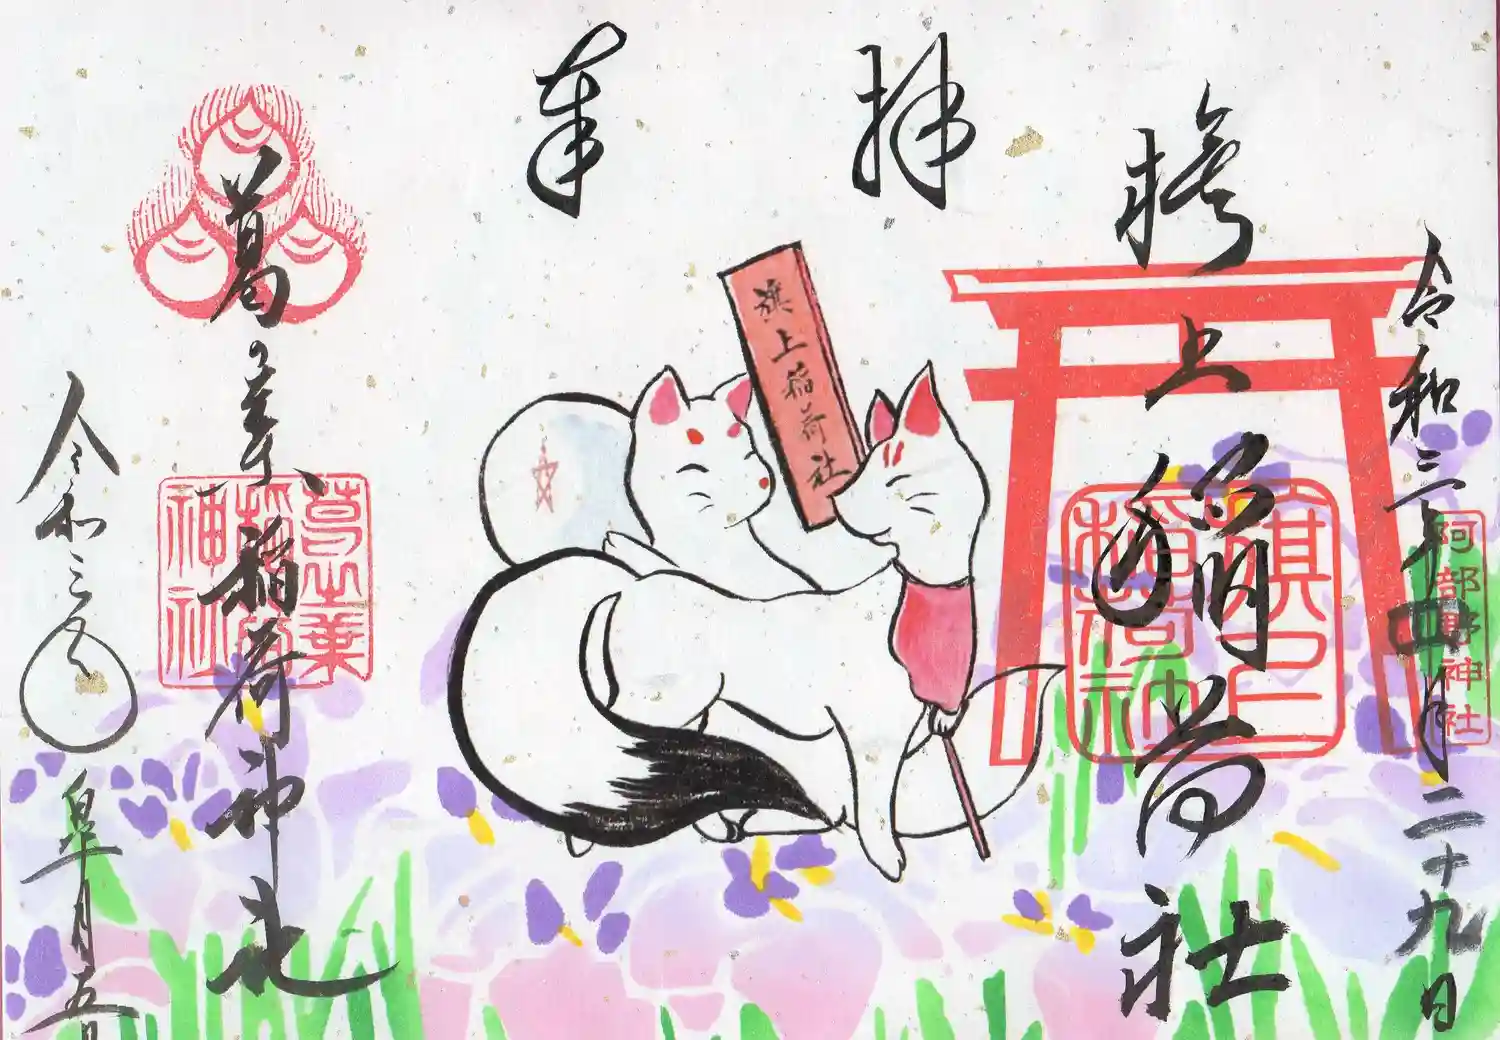 令和三年四月二十九日
阿部野神社
旗上稲荷社
旗上
稲荷社
奉拝
旗上稲荷社
葛の葉稲荷神社
葛葉
稲荷
神社
令和三年
皐月五日